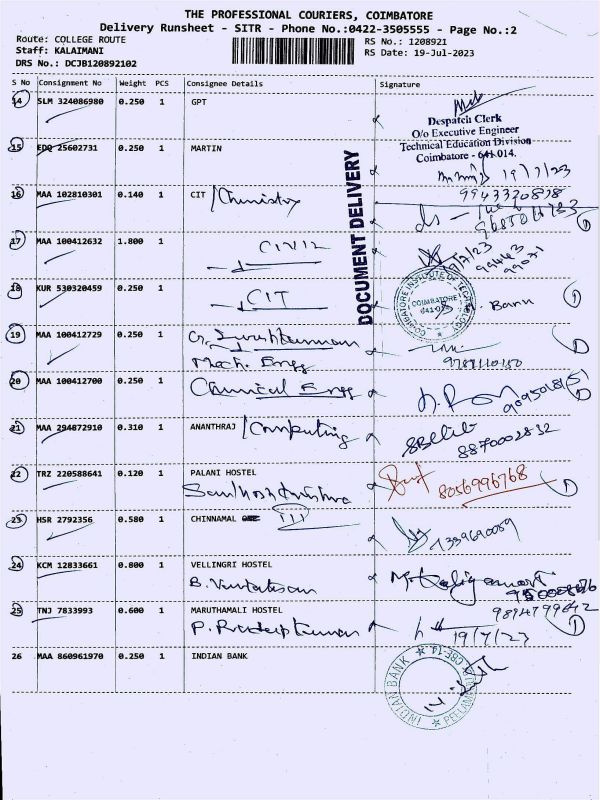 THE PROFESSIONAL COURIERS, COIMBATORE
Delivery Runsheet - SITR - Phone No.:0422-3505555 - Page No.:2
Route: COLLEGE ROUTE
RS No.: 1208921
Staff: KALAIMANI
RS Date: 19-Jul-2023
DRS No.: DCJB120892102
S No Consignment No Weight PCS Consignee Details Signature
14 SLM 324086980 0.250 1 GPT
Despatch Clerk
O/o Executive Engineer
Technical Education Division
Coimbatore - 641 014.
15 EDQ 25602731 0.250 1 MARTIN
19/7/23
DOCUMENT DELIVERY
16 MAA 102810301 0.140 1 CIT /Chemistry
9943320878
17 MAA 100412632 1.800 1 CIVIL
18 KUR 530320459 0.250 1 CIT
COIMBATORE INSTITUTE OF TECHNOLOGY
COIMBATORE
19 MAA 100412729 0.250 1
Mech. Engg
20 MAA 100412700 0.250 1 Chemical Engg
21 MAA 294872910 0.310 1 ANANTHRAJ /Computing
8870002832
22 TRZ 220588641 0.120 1 PALANI HOSTEL
8056996768
23 HSR 2792356 0.580 1 CHINNAMAL III
24 KCM 12833661 0.800 1 VELLINGRI HOSTEL
25 TNJ 7833993 0.600 1 MARUTHAMALI HOSTEL
P. Pradeep Kumar
19/7/23
26 MAA 860961970 0.250 1 INDIAN BANK
INDIAN BANK